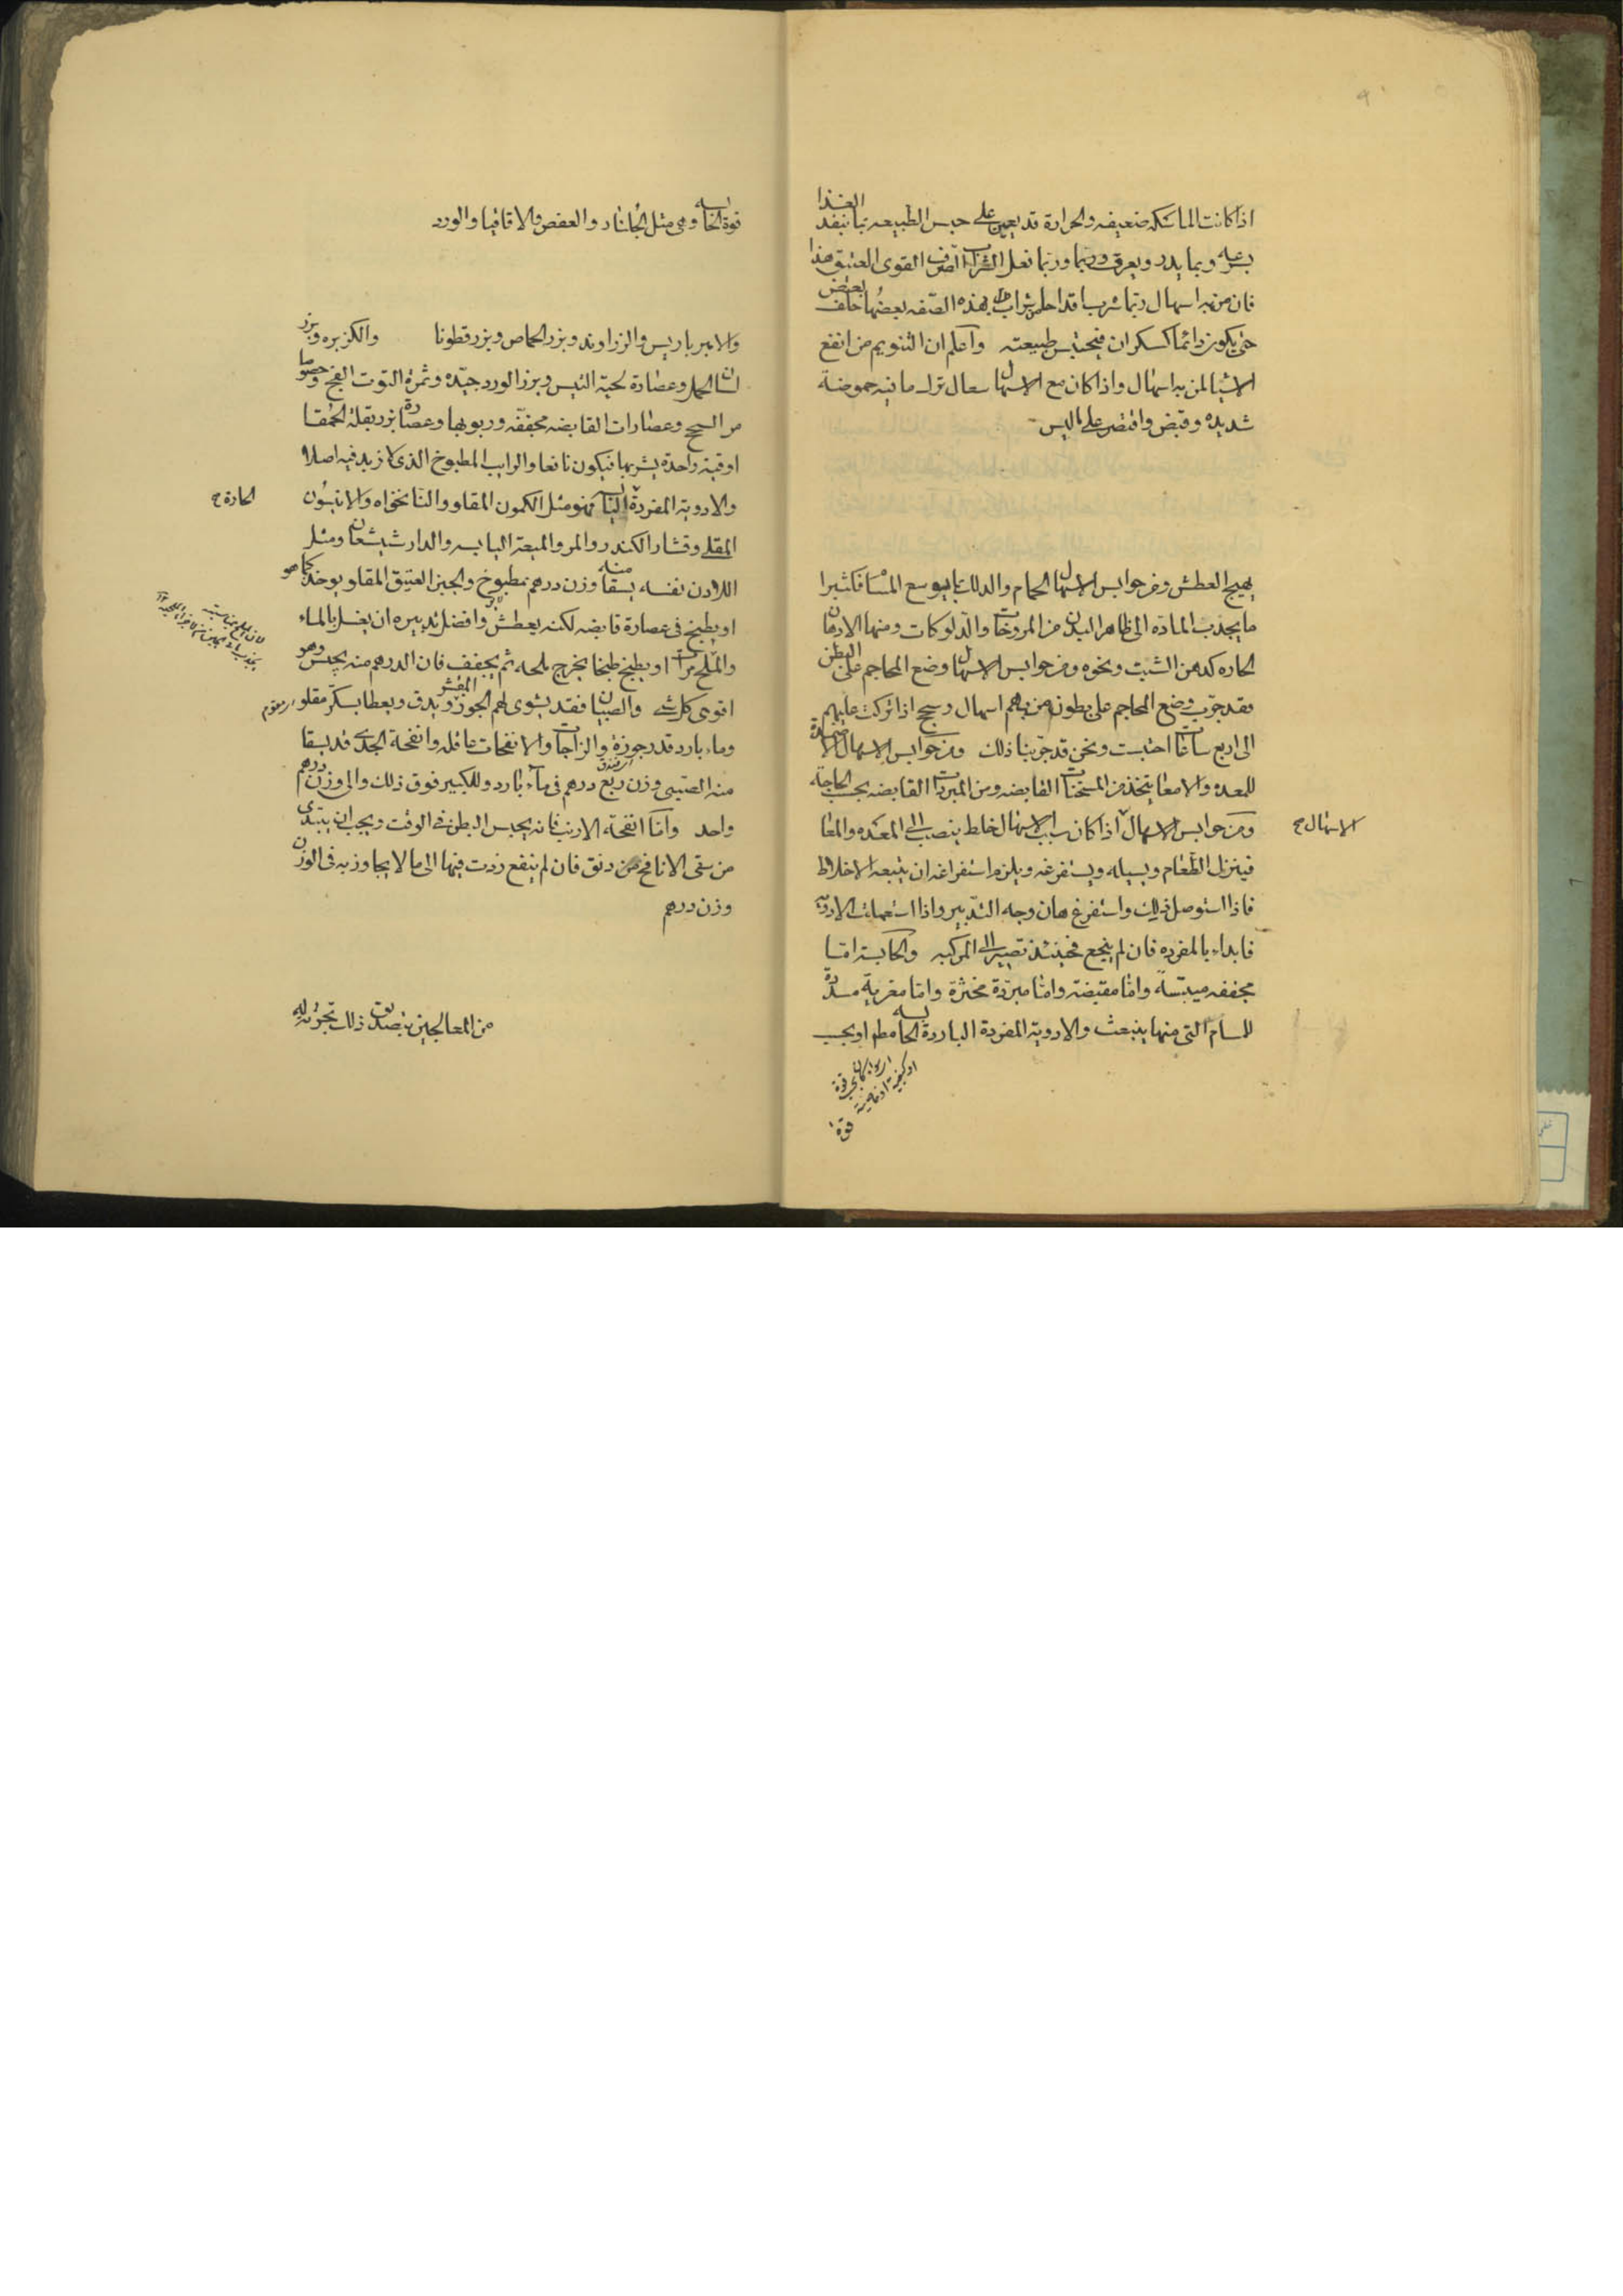 اذا كانت الماسكه ضعيفه والحرارة قد يعين على حبس الطبيعه بما ينفد الغذا
بسرعه وبما يدر ويعرق وربما نفعل الشراب الصرف القوى العتيق هذا
فان من به اسهال ربما شرب اقداحا من شراب بهذه الصفه بعضها خلف بعض
حتى يكون دائما كسكران فيحتبس طبيعته واعلم ان التنويم من انفع
الاشيا لمن به اسهال واذا كان مع الاسهال سعال ترك ما فيه حموضة
شديده وقبض واقتصر على ما ليس
يهيج العطش ومن حوابس الاسهال الحمام والدلك بما يوسع المسا فكثيرا
ما يجذب المادة الى ظاهر البدن من المروخات والدلوكات ومنها الادهان
الحاره كدهن الشبت ونحوه ومن حوابس الاسهال وضع المحاجم على البطن
فقد جرب وضع المحاجم على بطون من بهم اسهال وسحج اذا تركت عليهم
الى اربع ساعات احتبست ونحن قد جربنا ذلك ومن حوابس الاسهال الاضمدة
للمعده والامعا يتخذ من المسخنات القابضه ومن المبردات القابضه بحسب الحاجة
ومن حوابس الاسهال اذا كان سبب الاسهال خلط ينصب الى المعده والمعا
الاسهال ح
فينزل الطعام ويسيله ويستفرغه ويلزم استفراغه ان يتبعه الاخلاط
فاذا استوصل ذلك واستفرغ هان وجه التدبير واذا استعملت الادويه
فابداء بالمفرده فان لم ينجع فحينئذ تصير الى المركبه والحابسة اما
مجففه ميبسة واما مقبضة واما مبردة مخثرة واما مغرية مسددة
للمسام التى منها ينبعث والادوية المفردة الباردة الحابسه
قوة الحابسه وهى مثل الجلنار والعفص والاقاقيا والورد
والامبرباريس والزراوند وبزر الحماض وبزر قطونا والكزبره وبزر
لسان الحمل وعصارة لحية التيس وبزر الورد جيده وثمرة التوت الفج وخصوصا
من السحج وعصارات القابضه مجففه وربوبها وعصارة بزر بقلة الحمقا
اوقية واحدة يشربها فيكون نافعا والرايب المطبوخ الذى لا زبد فيه اصلا
والادوية المفردة فهو مثل الكمون المقلو والنانخواه والانيسون
الحارة ح
المقلى وقشار الكندر والمر والميعة اليابسه والدارشيشعان ومثل
اللادن نفسه يسقا منه وزن درهم بمطبوخ والجبن العتيق المقلو يوخذ كما هو
او يطبخ فى عصارة قابضه لكنه يعطش وافضل تدبيره ان يغسل بالماء
والملح مرات او يطبخ طبخا يخرج ملحه ثم يجفف فان الدرهم منه يحبس وهو
اقوى كل شى والصبيان فقد يشوى لهم الجوز المقشر ويدق ويعطا بسكر مقلو
وماء بارد قدر جوزة والزاجات والانفحات عاقله وانفحة الجدى قد يسقا
منه الصبى وزن ربع درهم فى ماء بارد وللكبير فوق ذلك والى وزن درهم
واحد واما انفحة الارنب فانه يحبس البطن فى الوقت ويجب ان يبتدى
من سقى الانافح من دنق فان لم ينفع زدت فيها الى ما لا يجاوز به فى الوزن
وزن درهم
من المعالجين بتصديق ذلك